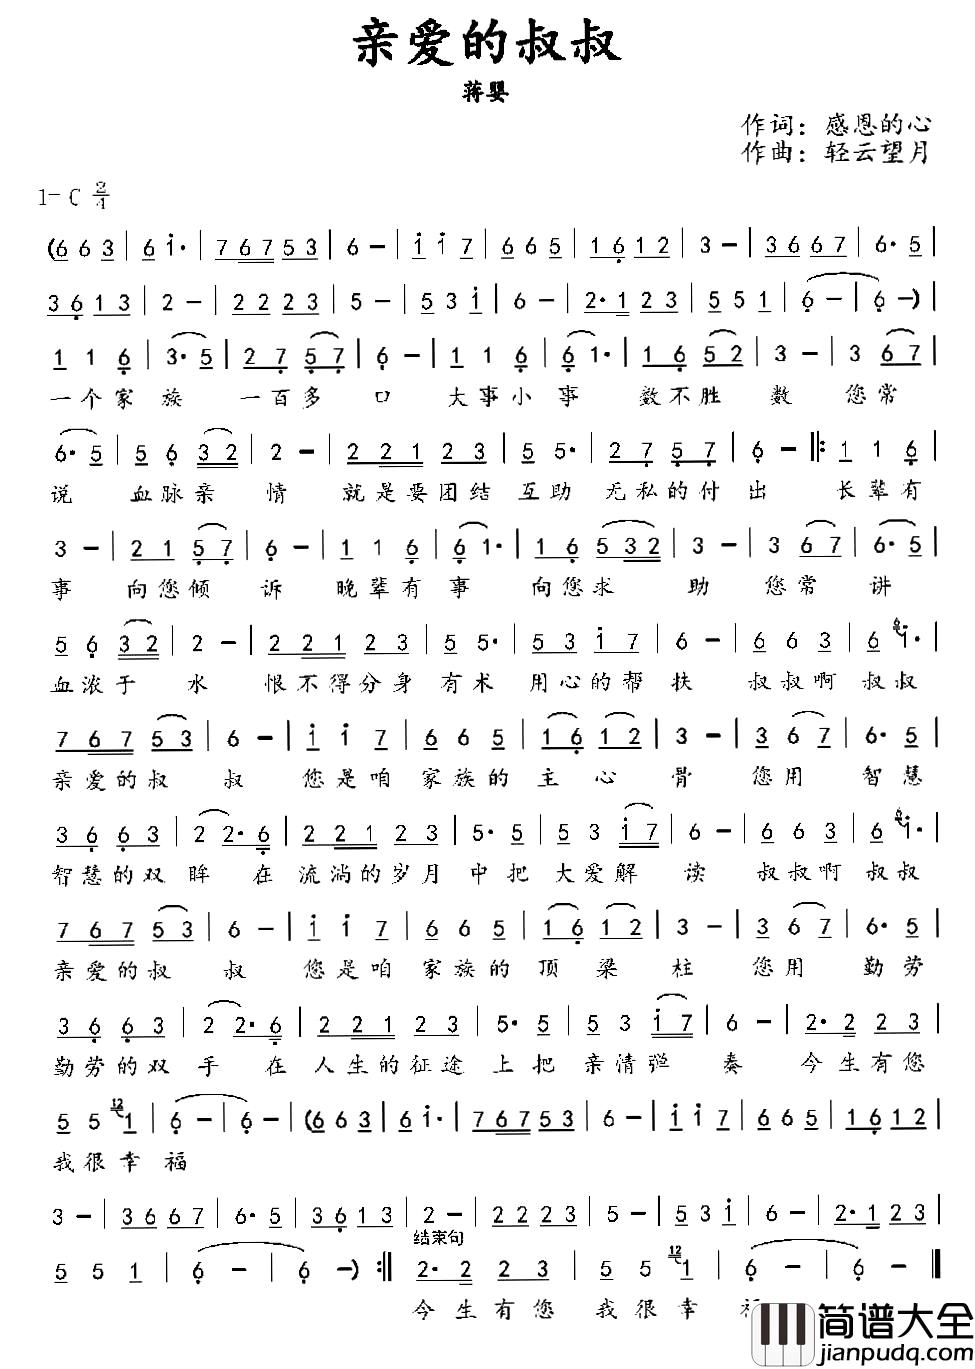 亲爱的叔叔
蒋婴
作词：感恩的心
作曲：轻云望月
1=C 2/4
(6 6 3 | 6 i· | 7 6 7 5 3 | 6 – | i i 7 | 6 6 5 | 1 6 1 2 | 3 – | 3 6 6 7 | 6· 5 |
3 6 1 3 | 2 – | 2 2 2 3 | 5 – | 5 3 i | 6 – | 2· 1 2 3 | 5 5 1 | 6 – | 6 –) |
1 1 6 | 3· 5 | 2 7 5 7 | 6 – | 1 1 6 | 6 1· | 1 6 5 2 | 3 – | 3 6 7 |
一个家 族 一百多 口 大事小 事 数不胜 数 您常
6· 5 | 5 6 3 2 | 2 – | 2 2 1 2 3 | 5 5· | 2 7 5 7 | 6 – |: 1 1 6 |
说 血脉亲 情 就是要团结 互助 无私的付 出 长辈有
3 – | 2 1 5 7 | 6 – | 1 1 6 | 6 1· | 1 6 5 3 2 | 3 – | 3 6 7 | 6· 5 |
事 向您倾 诉 晚辈有 事 向您求 助 您常 讲
5 6 3 2 | 2 – | 2 2 1 2 3 | 5 5· | 5 3 i 7 | 6 – | 6 6 3 | 6 i· |
血浓于 水 恨不得分身 有术 用心的帮 扶 叔叔啊 叔叔
7 6 7 5 3 | 6 – | i i 7 | 6 6 5 | 1 6 1 2 | 3 – | 3 6 7 | 6· 5 |
亲爱的叔 叔 您是咱 家族的 主 心 骨 您用 智慧
3 6 6 3 | 2 2· 6 | 2 2 1 2 3 | 5· 5 | 5 3 i 7 | 6 – | 6 6 3 | 6 i· |
智慧的双 眸 在 流淌的岁月 中把 大爱解 读 叔叔啊 叔叔
7 6 7 5 3 | 6 – | i i 7 | 6 6 5 | 1 6 1 2 | 3 – | 3 6 7 | 6· 5 |
亲爱的叔 叔 您是咱 家族的 顶 梁 柱 您用 勤劳
3 6 6 3 | 2 2· 6 | 2 2 1 2 3 | 5· 5 | 5 3 i 7 | 6 – | 2· 2 2 3 |
勤劳的双 手 在 人生的征途 上把 亲情弹 奏 今生有您
5 5 12 1 | 6 – | 6 – | (6 6 3 | 6 i· | 7 6 7 5 3 | 6 – | i i 7 | 6 6 5 | 1 6 1 2 |
我很幸 福
3 – | 3 6 6 7 | 6· 5 | 3 6 1 3 | 2 – | 2 2 2 3 | 5 – | 5 3 i | 6 – | 2· 1 2 3 |
结束句
5 5 1 | 6 – | 6 –) :| 2· 2 2 3 | 5 5 12 1 | 6 – | 6 – ‖
今生有您 我很幸
简谱大全
jianpudq.com